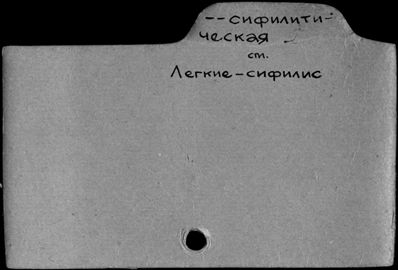 --сифилити-
ческая
см.
Легкие-сифилис